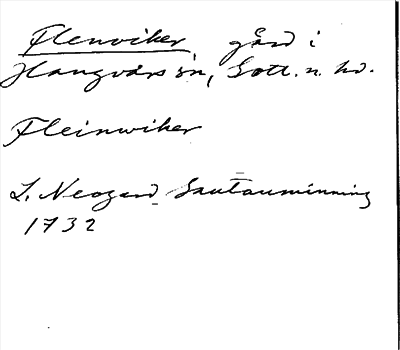 Flenviker gård i
Hangvars sn, Gotl. n. hd.
Fleinwiker
L. Neogard Gautauminning
1732